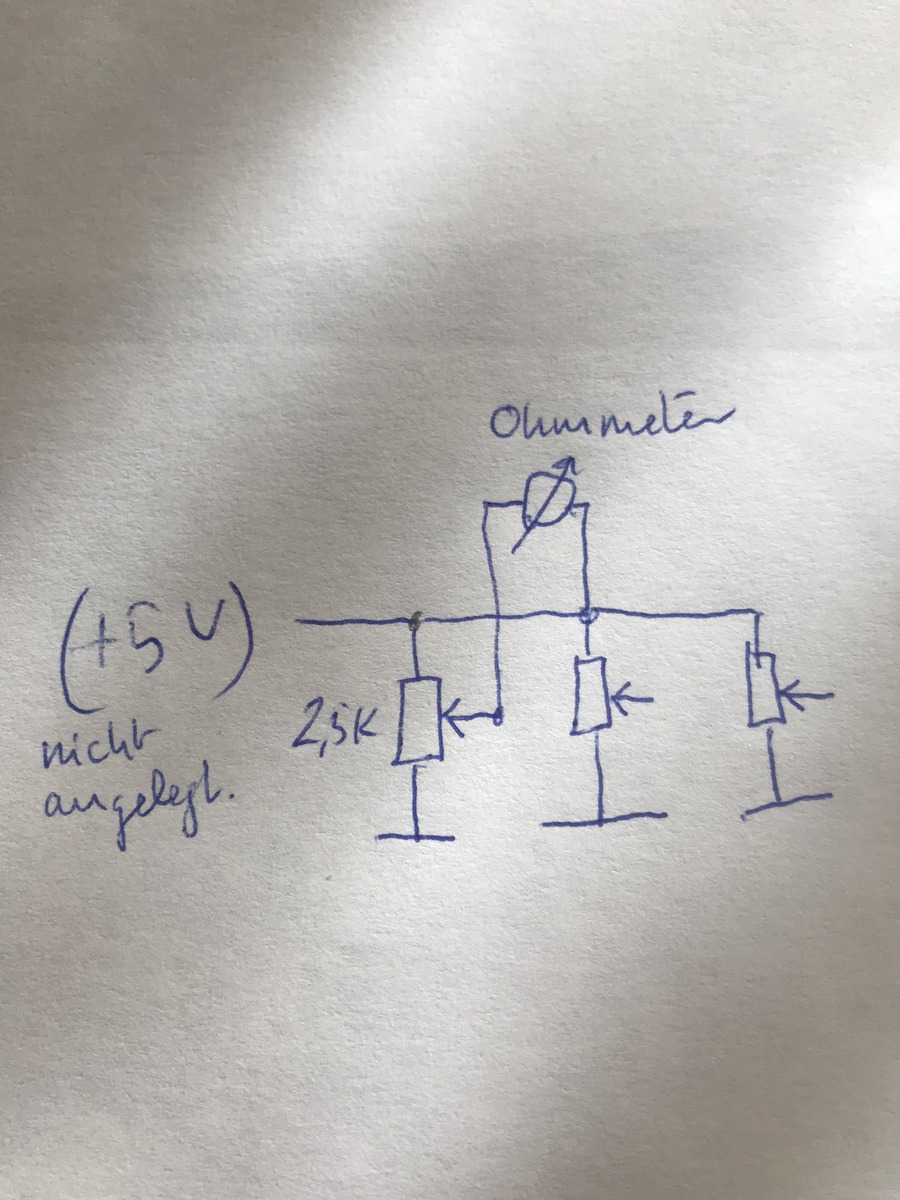 Ohmmeter
(+5V)
2,5K
nicht
angelegt.